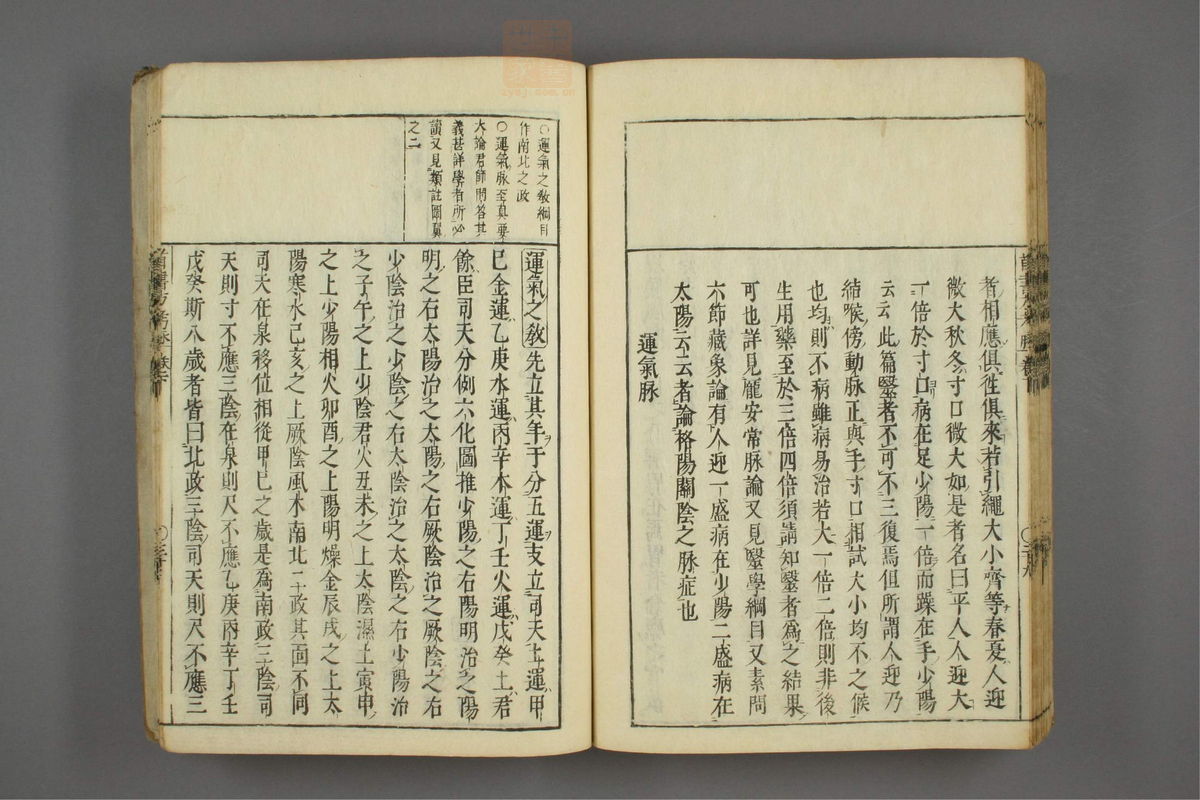 者相應俱徃俱來若引繩大小齊等春夏人迎
微大秋冬寸口微大如是者名曰平人人迎大
一倍於寸口病在足少陽一倍而躁在手少陽
云云此篇毉者不可不三復焉但所謂人迎乃
結喉傍動脉正與手寸口相試大小均不之候
也均則不病雖病易治若大一倍二倍則非後
生用藥至於三倍四倍須請知毉者爲之結果
可也詳見龐安常脉論又見毉學綱目又素問
六節藏象論有人迎一盛病在少陽二盛病在
太陽云云者論格陽關陰之脉症也
運氣脉
○運氣之敎綱目
作南北之政
○運氣脉至眞要
大論君師問答其
義甚詳學者所必
讀又見類註圖翼
之二
運氣之敎先立其年干分五運支立司天土運甲
巳金運乙庚水運丙辛木運丁壬火運戊癸土君
餘臣司天分例六化圖推少陽之右陽明治之陽
明之右太陽治之太陽之右厥陰治之厥陰之右
少陰治之少陰之右太陰治之太陰之右少陽治
之子午之上少陰君火丑未之上太陰濕土寅申
之上少陽相火卯酉之上陽明燥金辰戌之上太
陽寒水己亥之上厥陰風木南北二政其面不同
司天在泉移位相從甲巳之歳是爲南政三陰司
天則寸不應三陰在泉則尺不應乙庚丙辛丁壬
戊癸斯八歳者皆曰北政三陰司天則尺不應三
zysj.com.cn